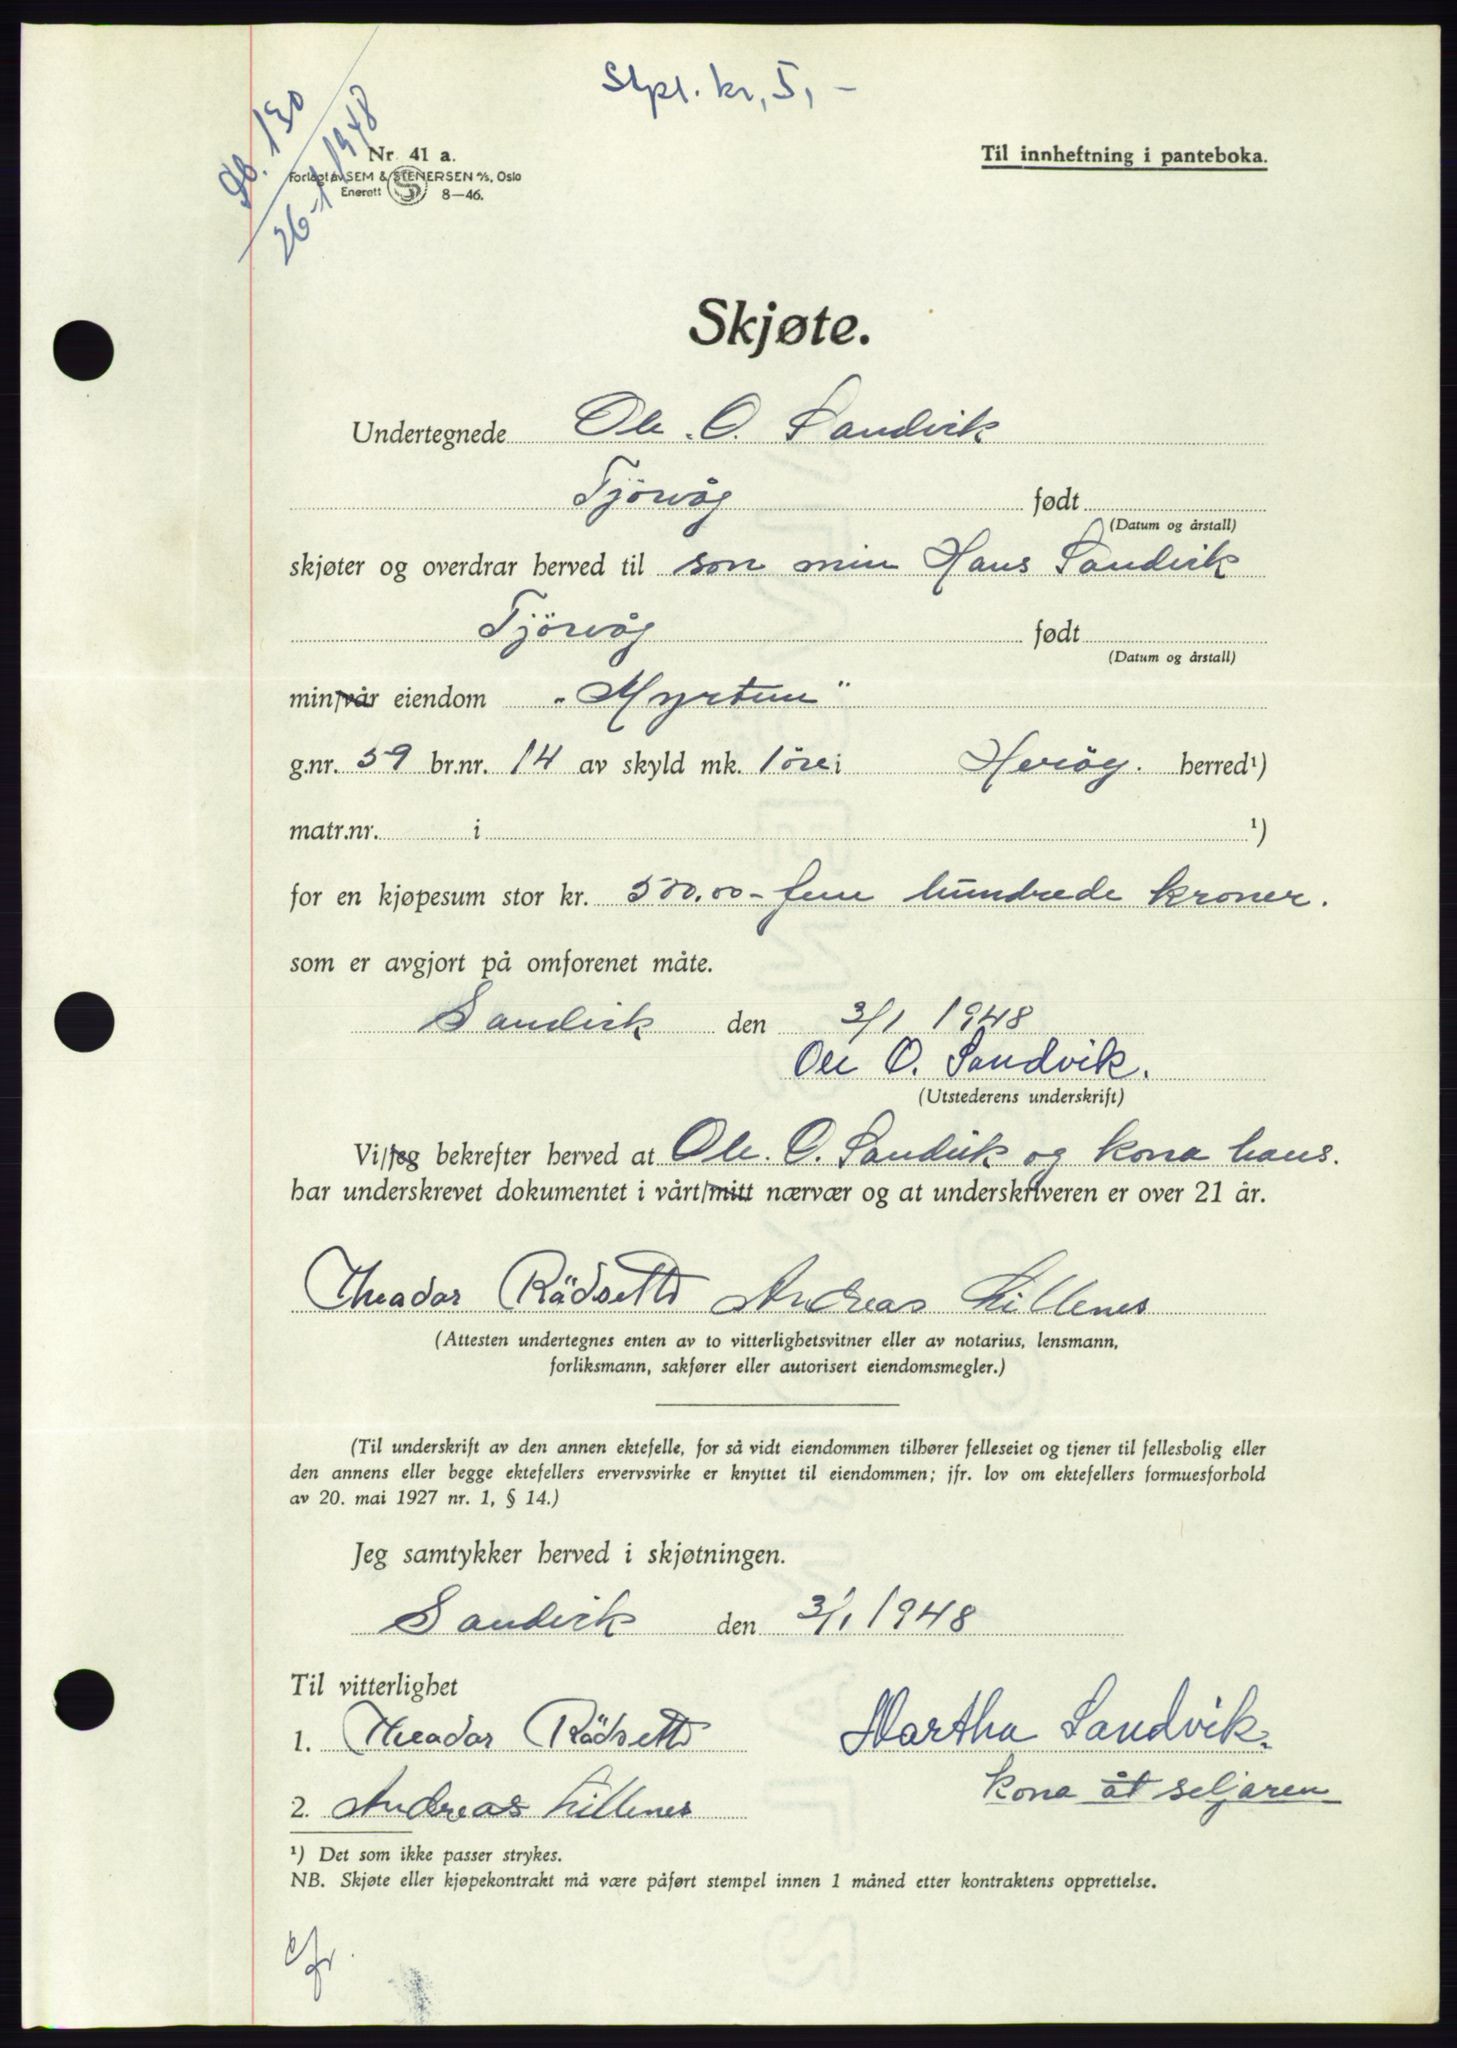 Stpl. kr, 5, -
Db. 130
26-1-1948
Nr. 41 a.
Forlagt av SEM & STENERSEN A/S, Oslo
Enerett S 8—46.
Til innheftning i panteboka.
Skjøte.
Undertegnede Ole. O. Sandvik
Tjörvåg født
(Datum og årstall)
skjøter og overdrar herved til son min Hans Sandvik
Tjörvåg født
(Datum og årstall)
min/vår eiendom "Myrtun"
g.nr. 59 br.nr. 14 av skyld mk. 1 öre i Heröy. herred¹)
matr.nr. i ¹)
for en kjøpesum stor kr. 500.00 - fem hundrede kroner.
som er avgjort på omforenet måte.
Sandvik den 3/1 1948
Ole O. Sandvik.
(Utstederens underskrift)
Vi/jeg bekrefter herved at Ole. O. Sandvik og kona hans.
har underskrevet dokumentet i vårt/mitt nærvær og at underskriveren er over 21 år.
Theadar Rädsetts Andreas Lillenes
(Attesten undertegnes enten av to vitterlighetsvitner eller av notarius, lensmann,
forliksmann, sakfører eller autorisert eiendomsmegler.)
(Til underskrift av den annen ektefelle, for så vidt eiendommen tilhører felleseiet og tjener til fellesbolig eller
den annens eller begge ektefellers ervervsvirke er knyttet til eiendommen; jfr. lov om ektefellers formuesforhold
av 20. mai 1927 nr. 1, § 14.)
Jeg samtykker herved i skjøtningen.
Sandvik den 3/1 1948
Til vitterlighet
1. Theadar Rädsetts
Martha Sandvik.
kona åt seljaren
2. Andreas Lillenes
¹) Det som ikke passer strykes.
NB. Skjøte eller kjøpekontrakt må være påført stempel innen 1 måned etter kontraktens opprettelse.